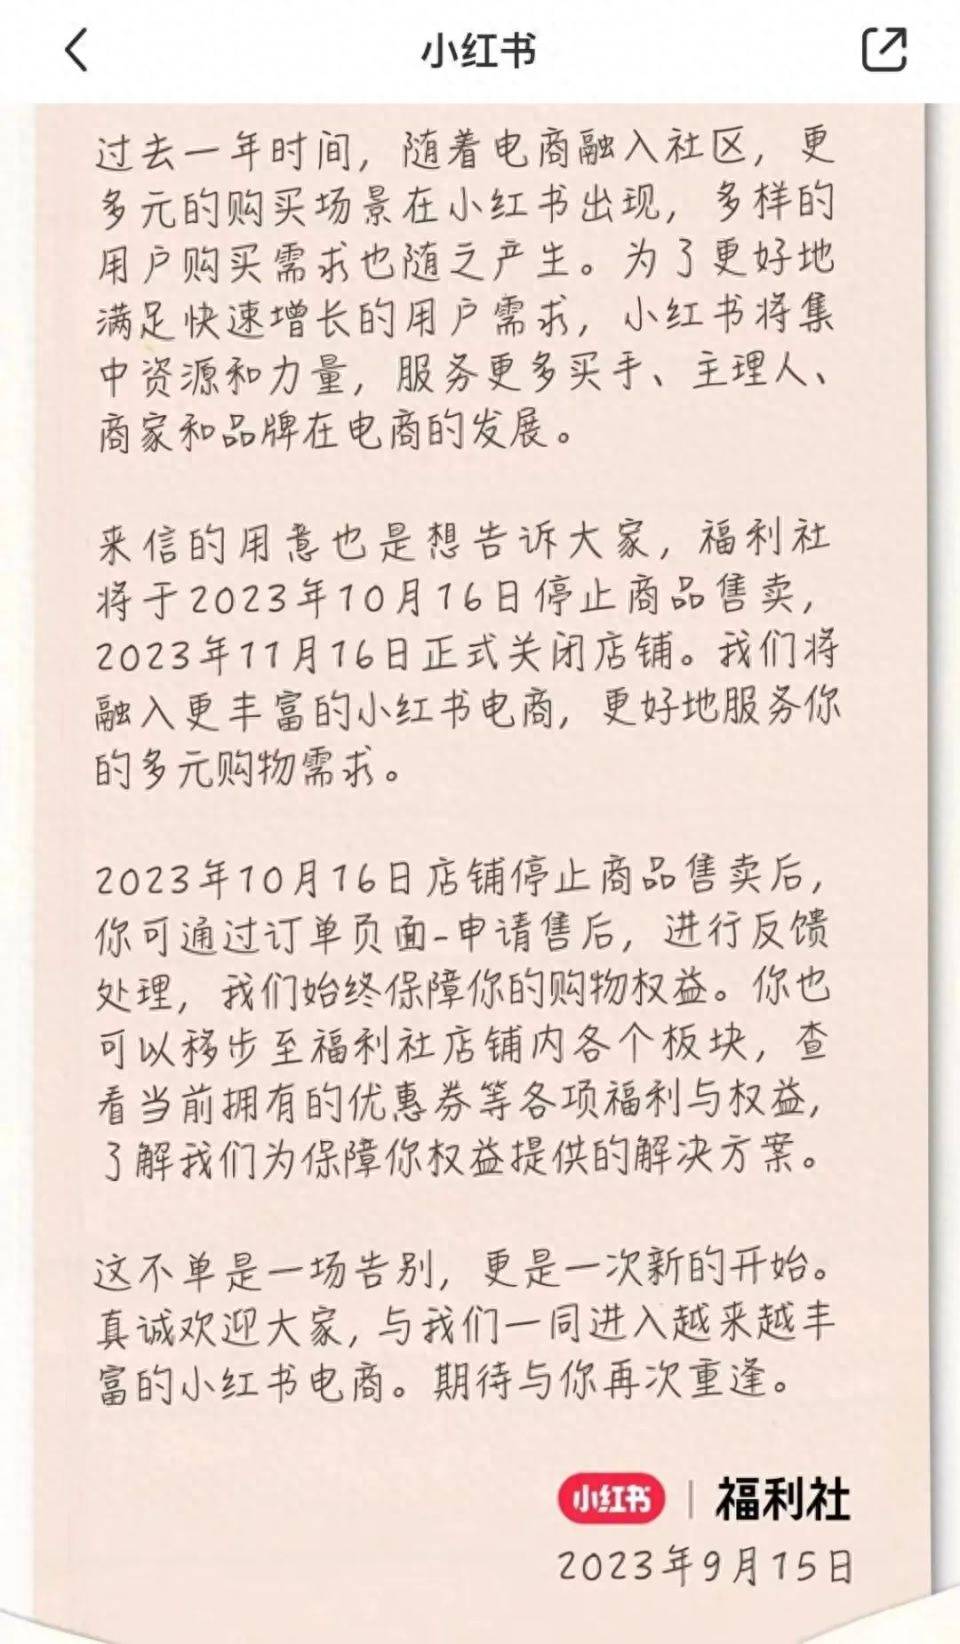 小红书
过去一年时间，随着电商融入社区，更
多元的购买场景在小红书出现，多样的
用户购买需求也随之产生。为了更好地
满足快速增长的用户需求，小红书将集
中资源和力量，服务更多买手、主理人、
商家和品牌在电商的发展。
来信的用意也是想告诉大家，福利社
将于2023年10月16日停止商品售卖，
2023年11月16日正式关闭店铺。我们将
融入更丰富的小红书电商，更好地服务你
的多元购物需求。
2023年10月16日店铺停止商品售卖后，
你可通过订单页面-申请售后，进行反馈
处理，我们始终保障你的购物权益。你也
可以移步至福利社店铺内各个板块，查
看当前拥有的优惠券等各项福利与权益，
了解我们为保障你权益提供的解决方案。
这不单是一场告别，更是一次新的开始。
真诚欢迎大家，与我们一同进入越来越丰
富的小红书电商。期待与你再次重逢。
小红书 | 福利社
2023年9月15日